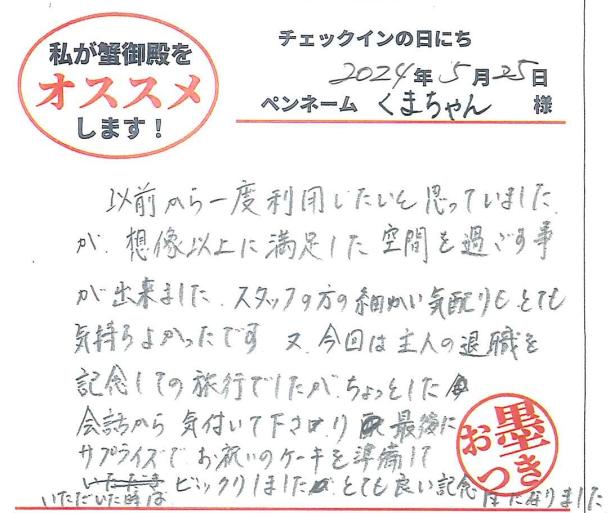 私が蟹御殿を
オススメ
します！
チェックインの日にち
2024年5月25日
ペンネーム くまちゃん 様
以前から一度利用したいと思っていました
が、想像以上に満足した空間を過ごす事
が出来ました。スタッフの方の細かい気配りもとても
気持ちよかったです 又、今回は主人の退職を
記念しての旅行でしたが、ちょっとした
会話から 気付いて下さり 最後に
サプライズで お祝いのケーキを準備して
いただいた時は ビックリしました とても良い記念になりました
お墨つき